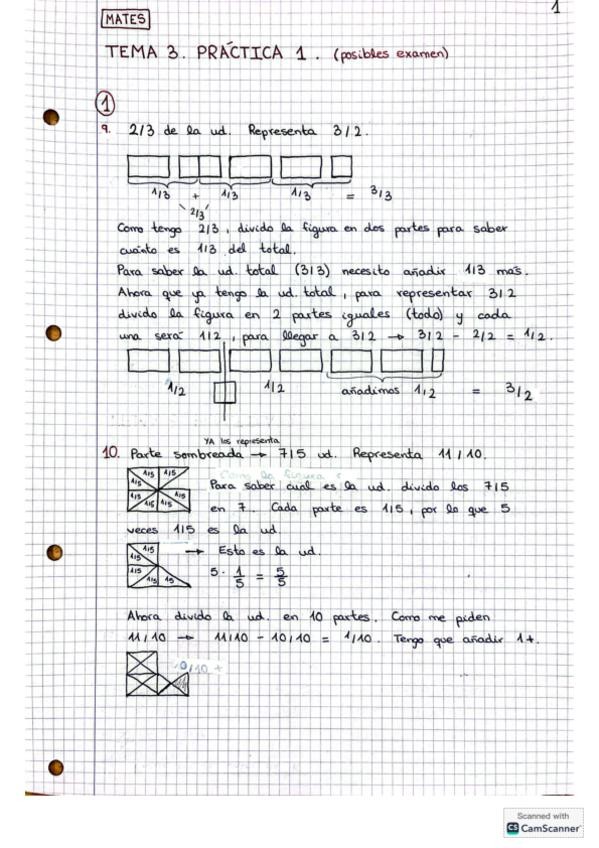 1
MATES
TEMA 3. PRÁCTICA 1. (posibles examen)
1
9. 2/3 de la ud. Representa 3/2.
1/3 + 1/3 1/3 = 3/3
2/3
Como tengo 2/3, divido la figura en dos partes para saber
cuánto es 1/3 del total.
Para saber la ud. total (3/3) necesito añadir 1/3 más.
Ahora que ya tengo la ud. total, para representar 3/2
divido la figura en 2 partes iguales (todo) y cada
una será 1/2, para llegar a 3/2 → 3/2 - 2/2 = 1/2.
1/2 1/2 añadimos 1/2 = 3/2
YA los representa
10. Parte sombreada → 7/5 ud. Representa 11/10.
1/5 1/5
1/5
1/5 1/5
1/5 1/5
Para saber cual es la ud. divido los 7/5
en 7. Cada parte es 1/5, por lo que 5
veces 1/5 es la ud.
1/5
1/5
1/5
1/5 1/5
→ Esto es la ud.
5 · 1/5 = 5/5
Ahora divido la ud. en 10 partes. Como me piden
11/10 → 11/10 - 10/10 = 1/10. Tengo que añadir 1+.
Scanned with
CS CamScanner